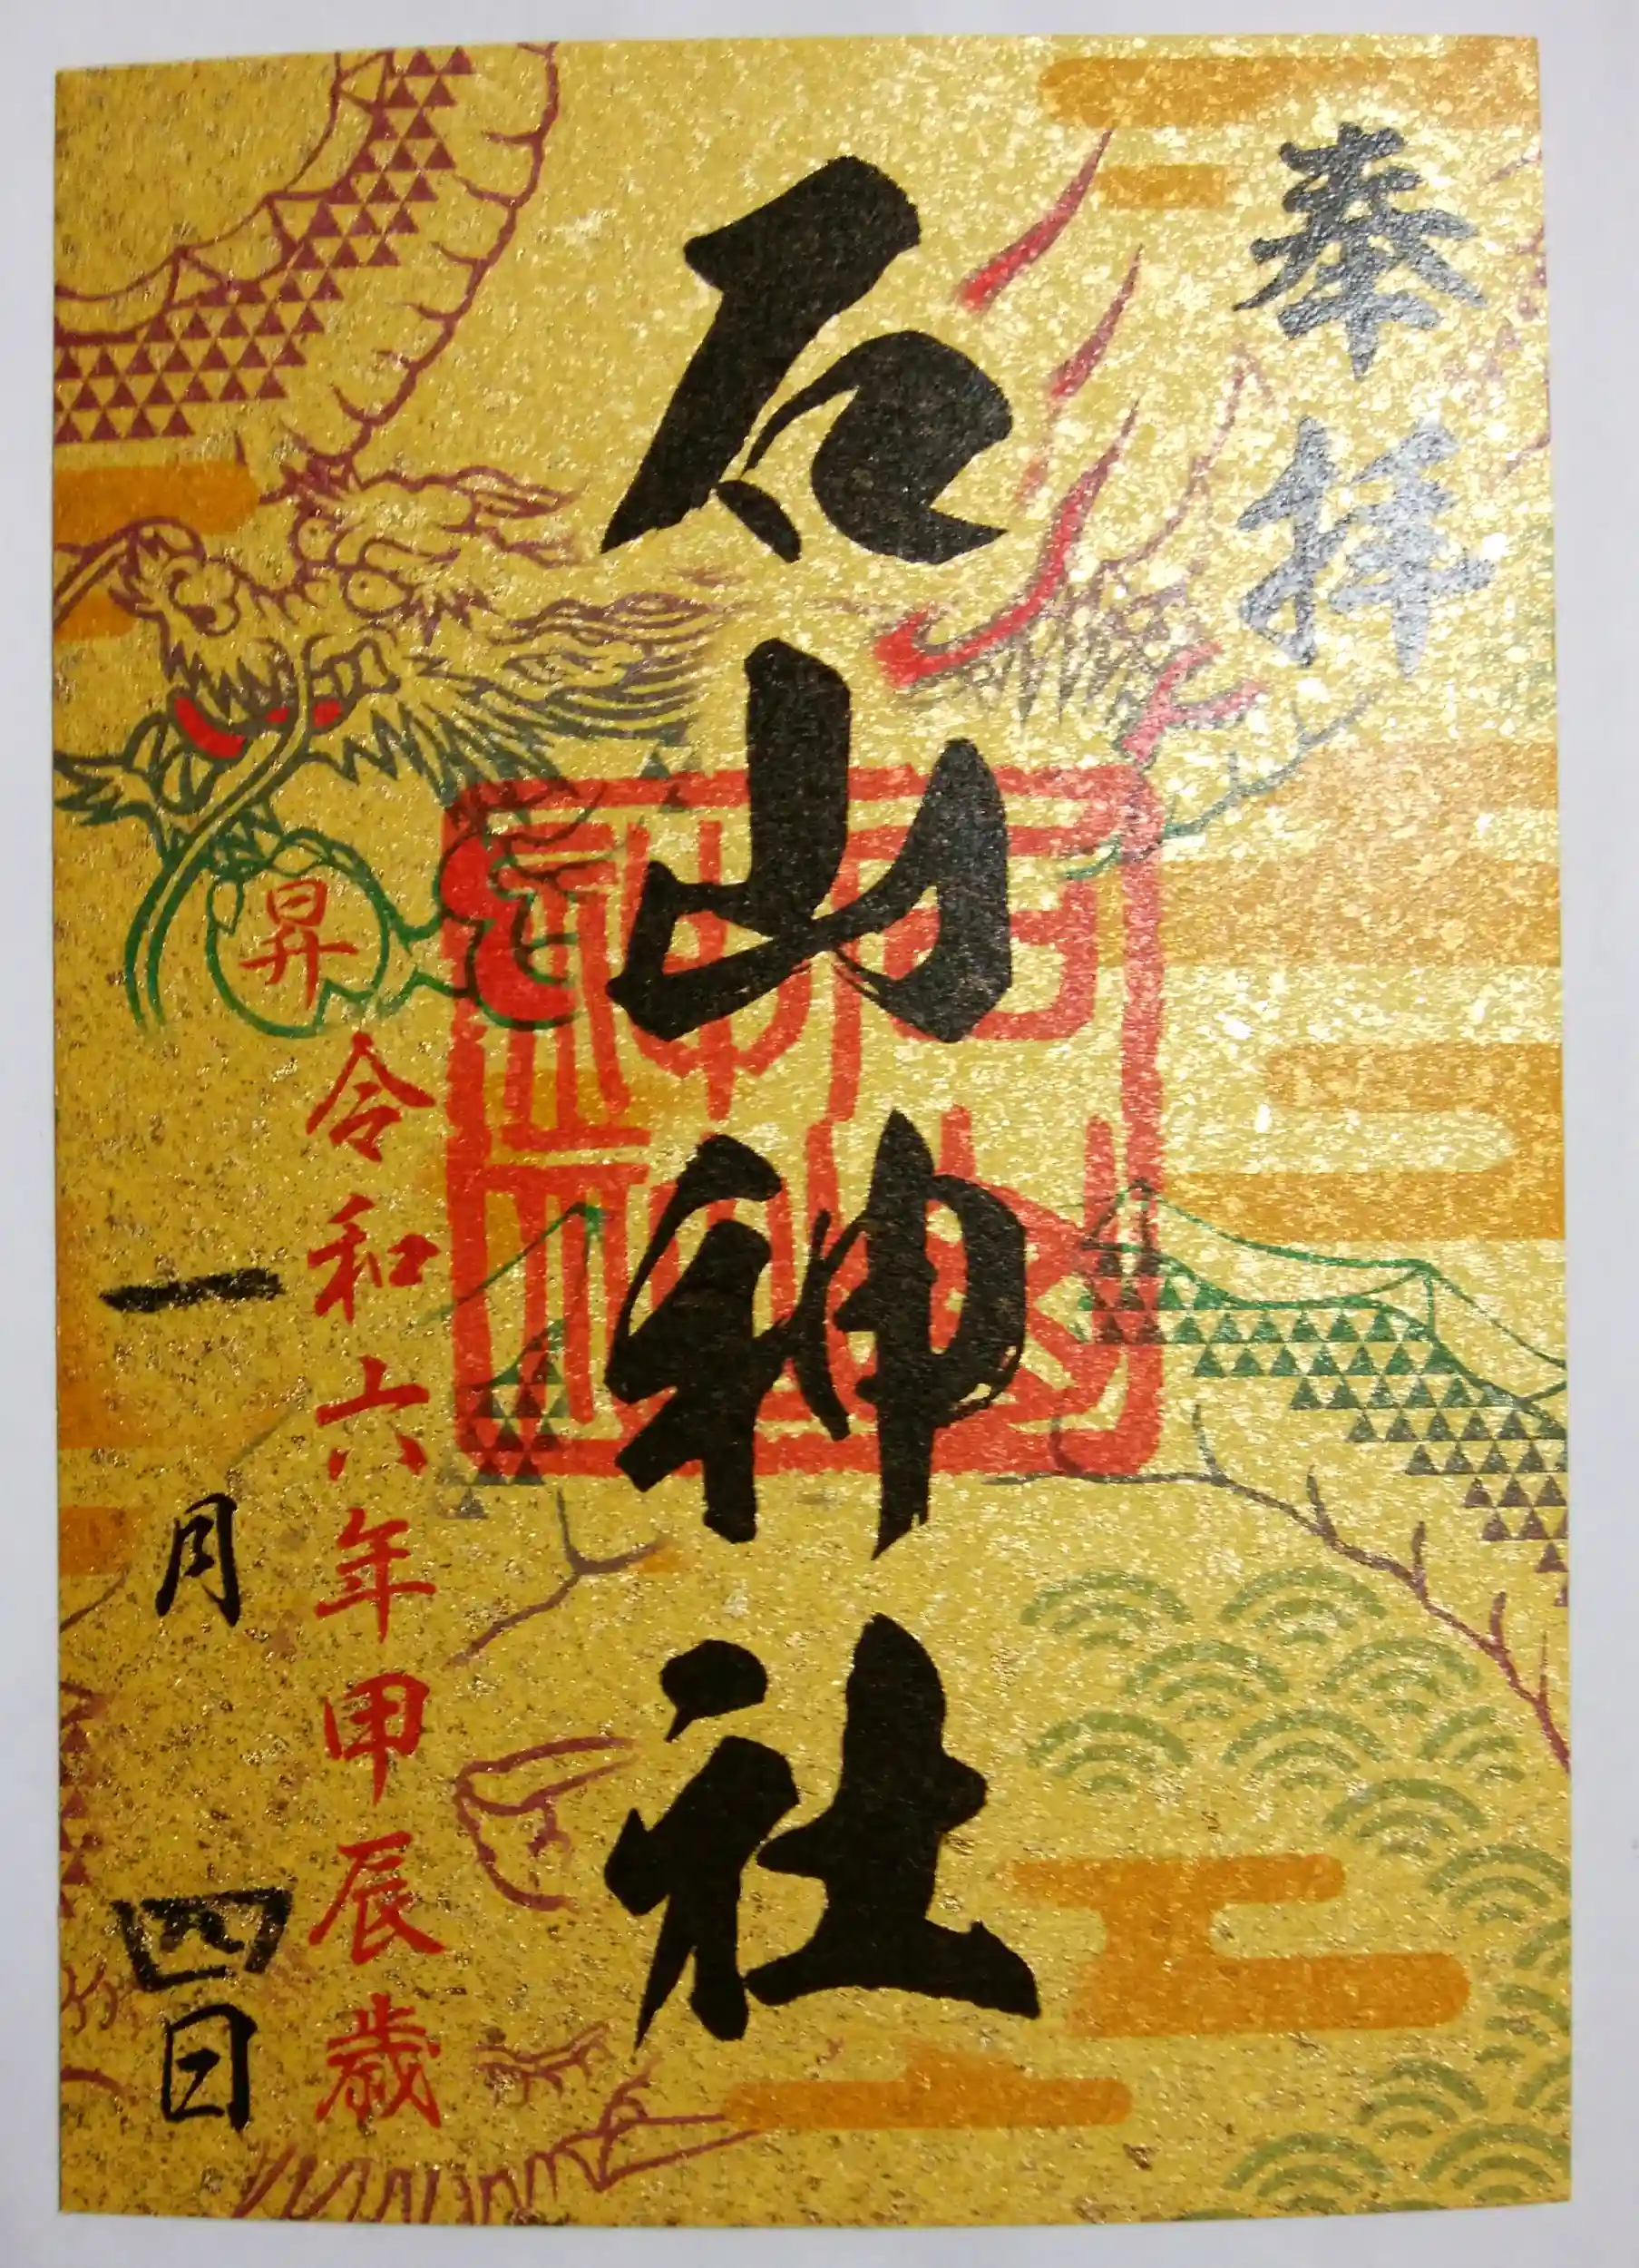 奉拝
石山神社
昇
令和六年甲辰歳
一月四日